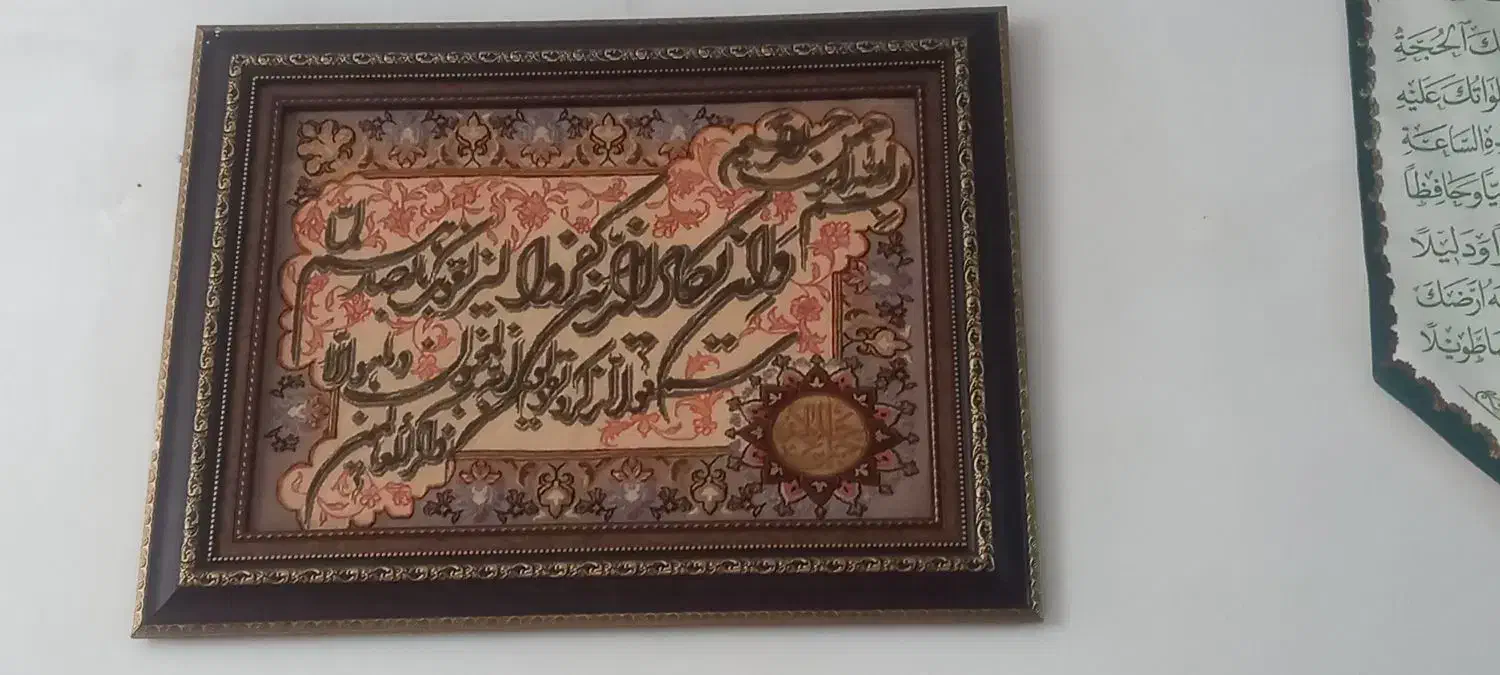 بسم الله الرحمن الرحیم
وان یکاد الذین کفروا لیزلقونک بابصارهم لما
سمعوا الذکر و یقولون انه لمجنون و ما هو الا
ذکر للعالمین
ک الحجة
علیه
الساعة
وحافظا
ودلیلا
ارضک
طویلا